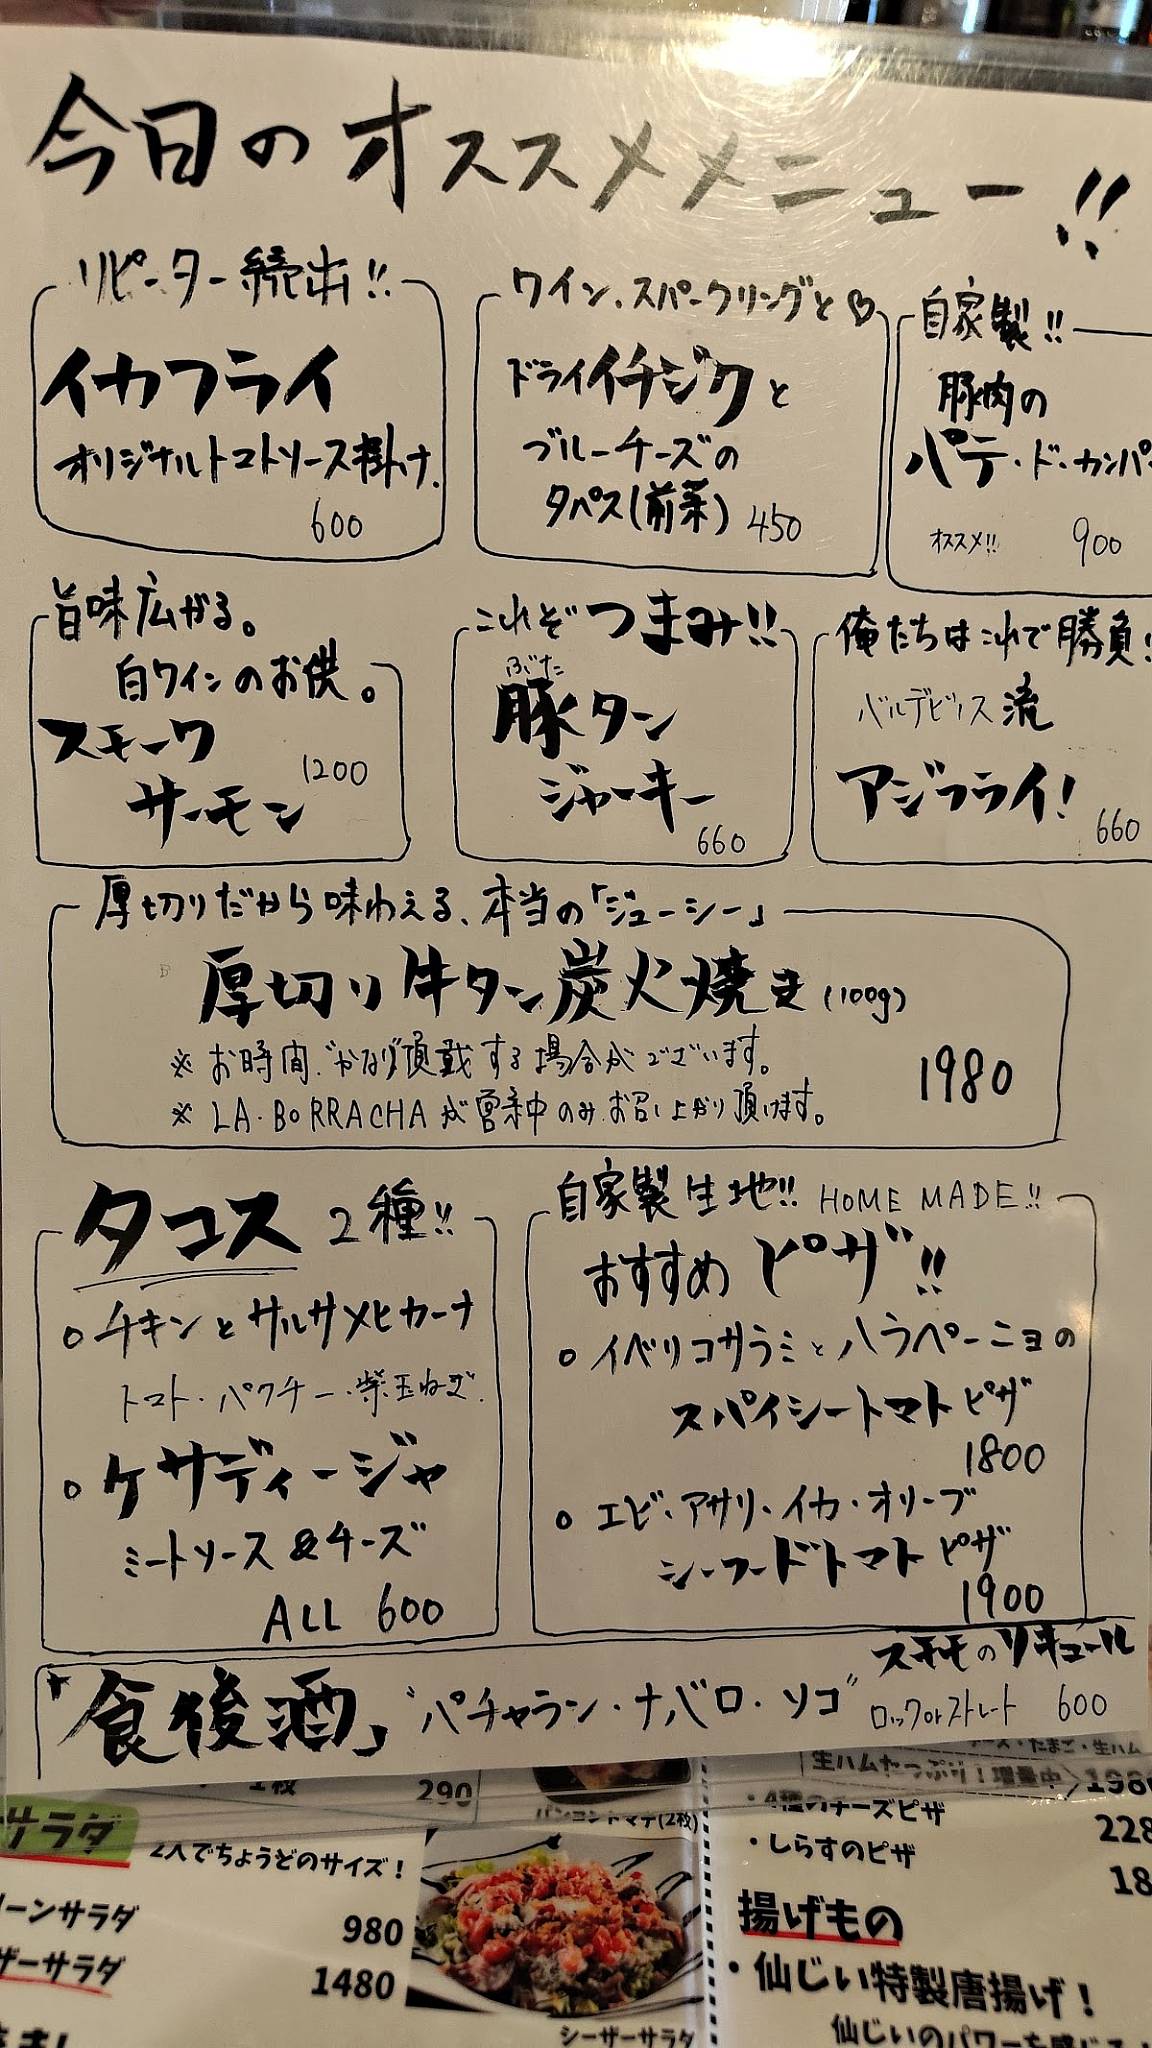 今日のオススメメニュー!!
リピーター続出!!
イカフライ
オリジナルトマトソース掛け.
600
ワイン、スパークリングと♡
ドライイチジクと
ブルーチーズの
タパス(前菜) 450
自家製!!
豚肉の
パテ・ド・カンパ
オススメ!! 900
旨味広がる。
白ワインのお供。
スモーク
サーモン
1200
これぞつまみ!!
ぶた
豚タン
ジャーキー
660
俺たちはこれで勝負!
バルデビリス流
アジフライ!
660
厚切りだから味わえる、本当の「ジューシー」
厚切り牛タン炭火焼き(100g)
※お時間、かなり頂戴する場合がございます。
※LA・BORRACHAが営業中のみお召し上がり頂けます。
1980
タコス 2種!!
○チキンとサルサメヒカーナ
トマト・パクチー・紫玉ねぎ.
○ケサディージャ
ミートソース&チーズ
ALL 600
自家製生地!! HOME MADE!!
おすすめピザ!!
○イベリコサラミとハラペーニョの
スパイシートマトピザ
1800
○エビ・アサリ・イカ・オリーブ
シーフードトマトピザ
1900
「食後酒」"パチャラン・ナバロ・ソコ"
スモモのリキュール
ロックorストレート 600
1枚 290
パンコントマテ(2枚)
ズ・たまご・生ハム
生ハムたっぷり!増量中 198
・4種のチーズピザ 228
・しらすのピザ 18
サラダ 2人でちょうどのサイズ!
リーンサラダ 980
ザーサラダ 1480
シーザーサラダ
揚げもの
・仙じい特製唐揚げ!
仙じいのパワーを感じる